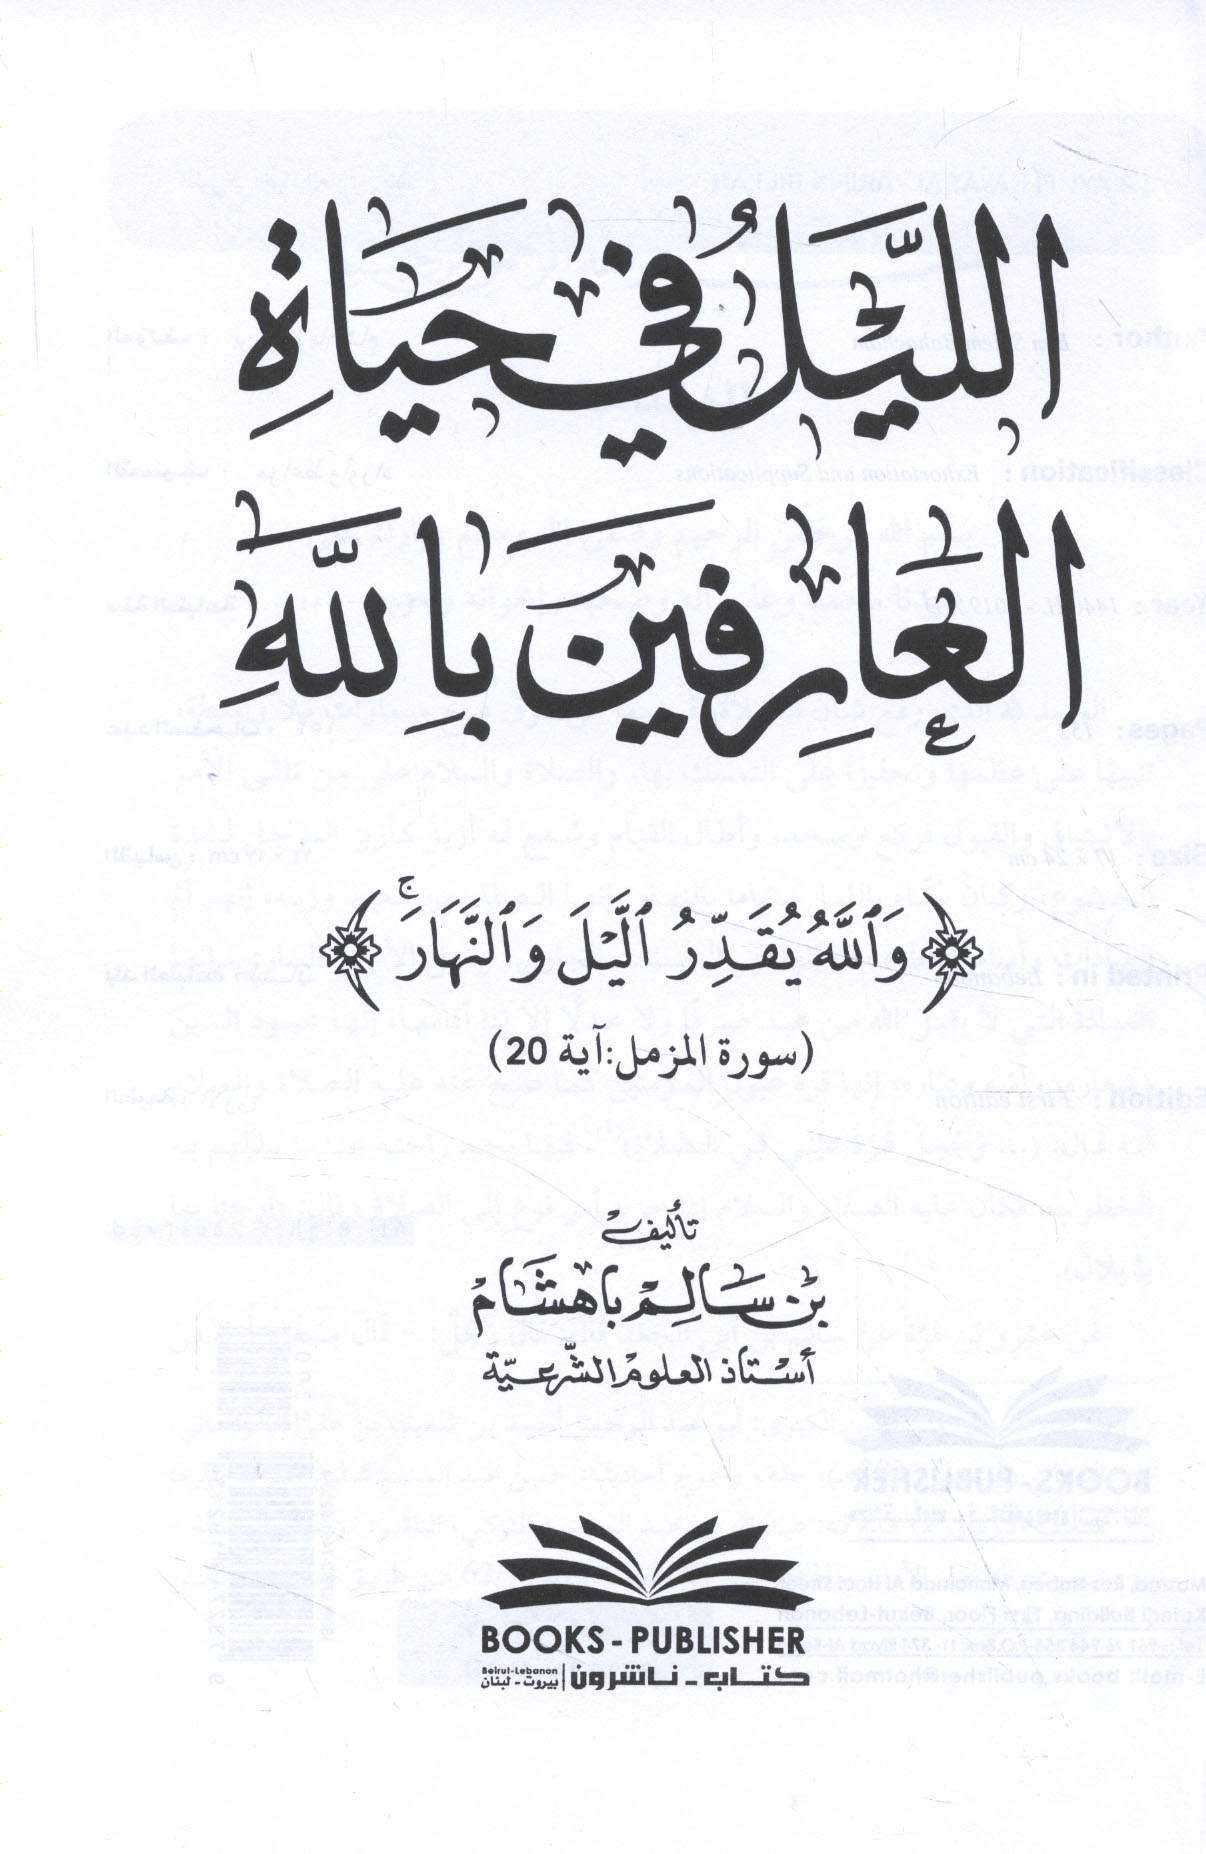 اللَّيْلُ فِي حَيَاةِ
العَارِفِينَ بِاللَّهِ
﴿وَٱللَّهُ يُقَدِّرُ ٱلَّيْلَ وَٱلنَّهَارَۚ﴾
(سورة المزمل: آية 20)
تأليف
بن سالم باهشام
أستاذ العلوم الشرعيّة
BOOKS - PUBLISHER
كتاب - ناشرون | بيروت - لبنان Beirut-Lebanon